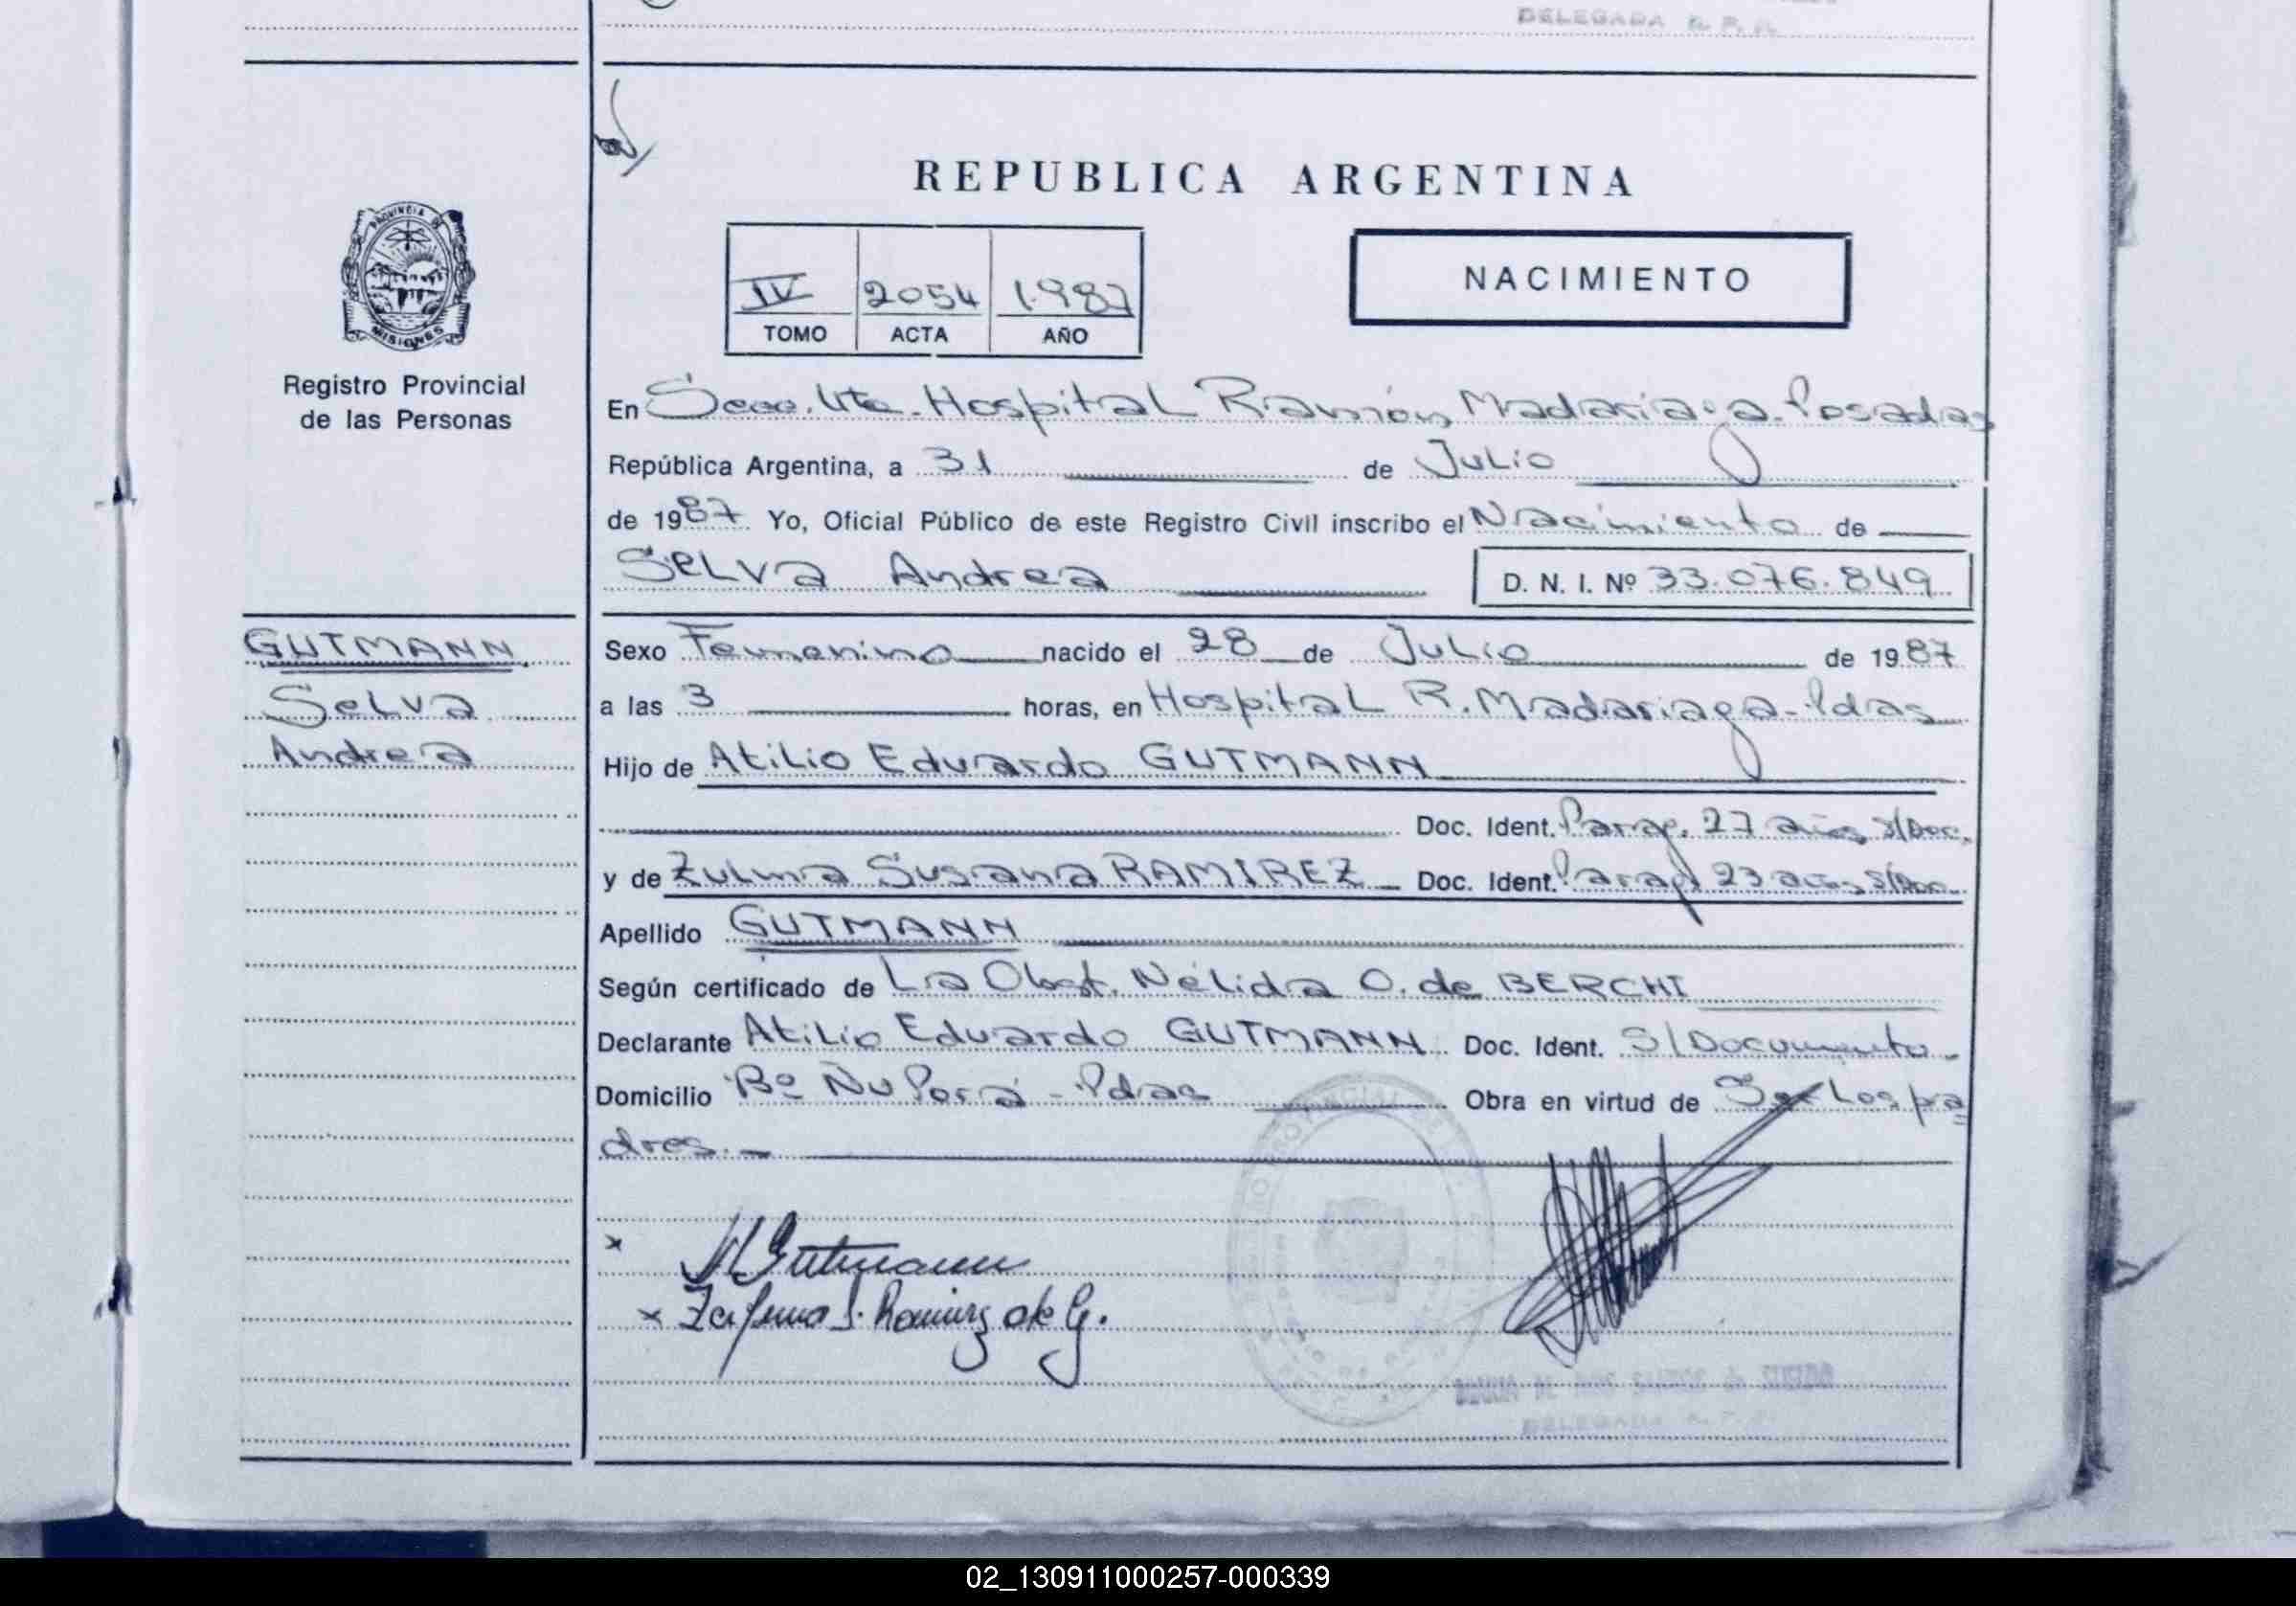 DELEGADA R. P. P.
REPUBLICA ARGENTINA
IV 2054 1987
TOMO ACTA AÑO
NACIMIENTO
PROVINCIA DE
MISIONES
Registro Provincial
de las Personas
En Secc. Hospital Ramón Madariaga. Posadas
República Argentina, a 31 de Julio
de 1987 Yo, Oficial Público de este Registro Civil inscribo el Nacimiento de
Selva Andrea D. N. I. Nº 33.076.849
GUTMANN
Selva
Andrea
Sexo Femenino nacido el 28 de Julio de 1987
a las 3 horas, en Hospital R. Madariaga - Pdas
Hijo de Atilio Eduardo GUTMANN
Doc. Ident. Parag. 27 años s/Doc.
y de Zulma Susana RAMIREZ Doc. Ident. Parag 23 años S/Doc.
Apellido GUTMANN
Según certificado de La Obst. Nélida O. de BERCHI
Declarante Atilio Eduardo GUTMANN Doc. Ident. S/Documento
Domicilio Bº Ñu Porá - Pdas Obra en virtud de Ser Los pa
dres. -
x Gutmann
x S. Ramirez de G.
DELEGADA R. P. P.
02_130911000257-000339